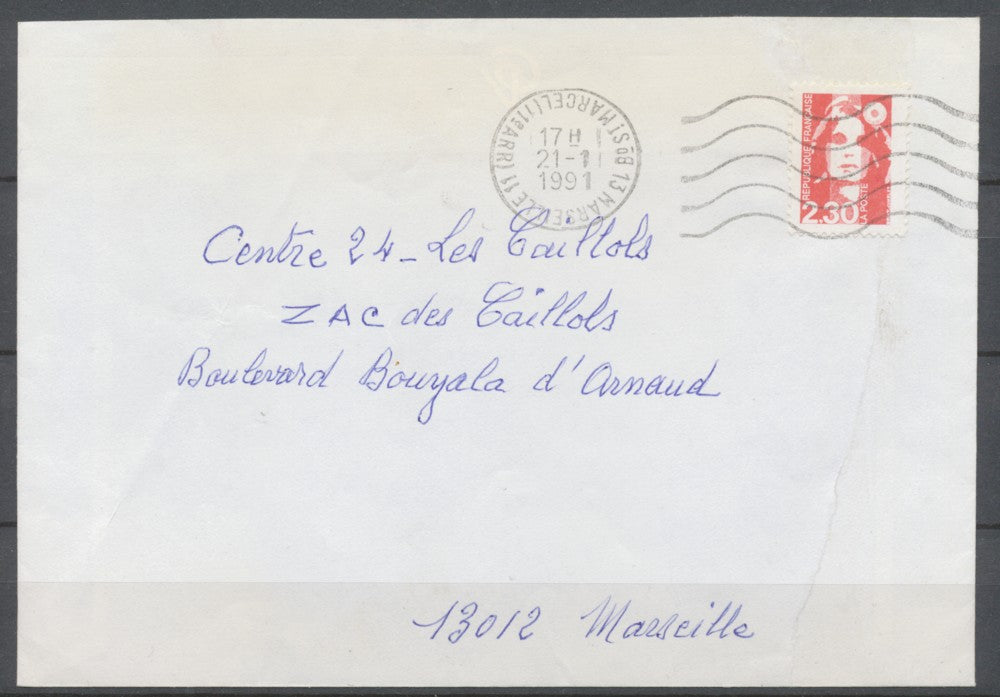 13 MARSEILLE 11
Bd St MARCEL (11e ARR)
17 H
21-1
1991
RÉPUBLIQUE FRANÇAISE
2,30
LA POSTE
Centre 24 - Les Caillols
ZAC des Caillols
Boulevard Bouyala d'Arnaud
13012 Marseille